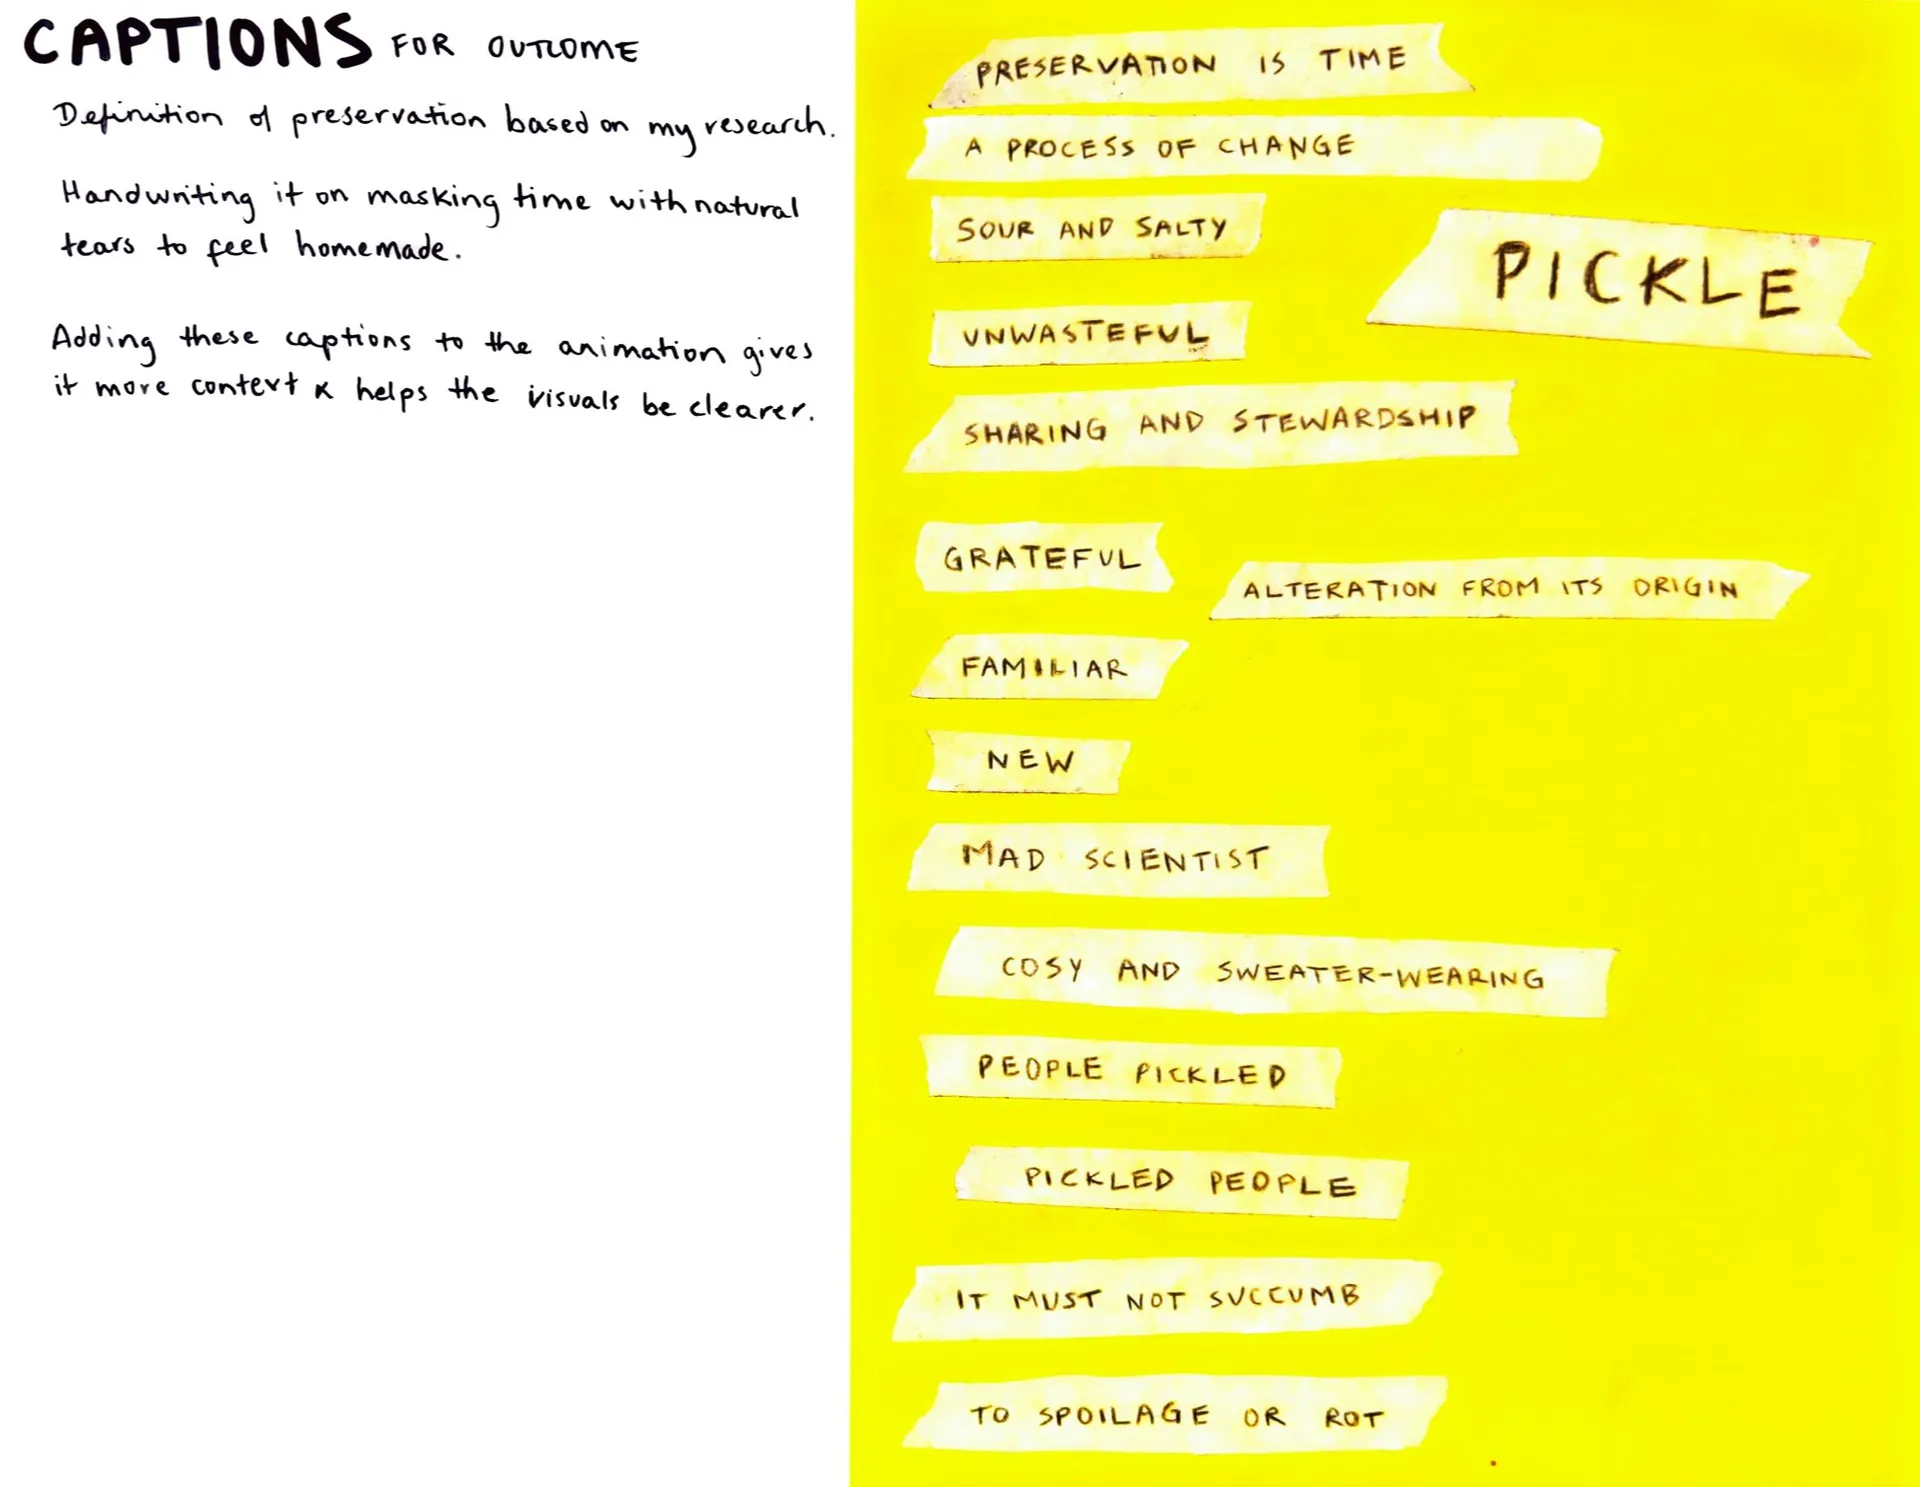 CAPTIONS FOR OUTCOME
Definition of preservation based on my research.
Handwriting it on masking time with natural
tears to feel homemade.
Adding these captions to the animation gives
it more context & helps the visuals be clearer.
PRESERVATION IS TIME
A PROCESS OF CHANGE
SOUR AND SALTY
PICKLE
UNWASTEFUL
SHARING AND STEWARDSHIP
GRATEFUL
ALTERATION FROM ITS ORIGIN
FAMILIAR
NEW
MAD SCIENTIST
COSY AND SWEATER-WEARING
PEOPLE PICKLED
PICKLED PEOPLE
IT MUST NOT SUCCUMB
TO SPOILAGE OR ROT